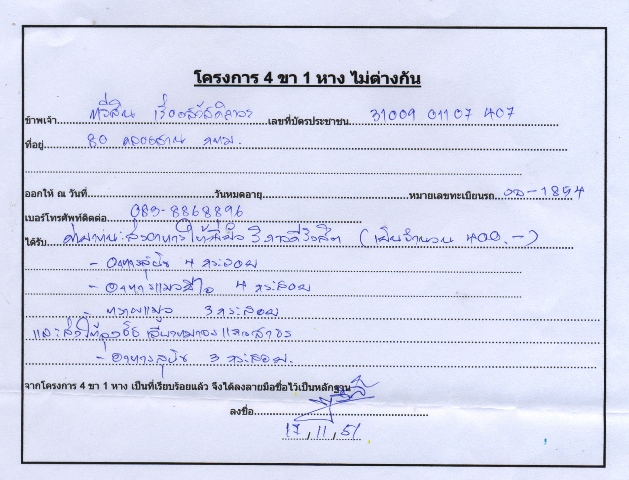 โครงการ 4 ขา 1 หาง ไม่ต่างกัน
ข้าพเจ้า ทวีสิน เลขที่บัตรประชาชน 31009 01107 407
ที่อยู่ 80 คลองสาน กทม.
ออกให้ ณ วันที่ วันหมดอายุ หมายเลขทะเบียนรถ -1894
เบอร์โทรศัพท์ติดต่อ 089-8868896
ได้รับ ส่งอาหารให้ รังสิต (เป็นจำนวน 400.-)
- อาหารสุนัข 4 กระสอบ
- อาหารแมว 4 กระสอบ
- ทรายแมว 3 กระสอบ
และส่งให้
- อาหารสุนัข 3 กระสอบ.
จากโครงการ 4 ขา 1 หาง เป็นที่เรียบร้อยแล้ว จึงได้ลงลายมือชื่อไว้เป็นหลักฐาน
ลงชื่อ
17, 11, 51